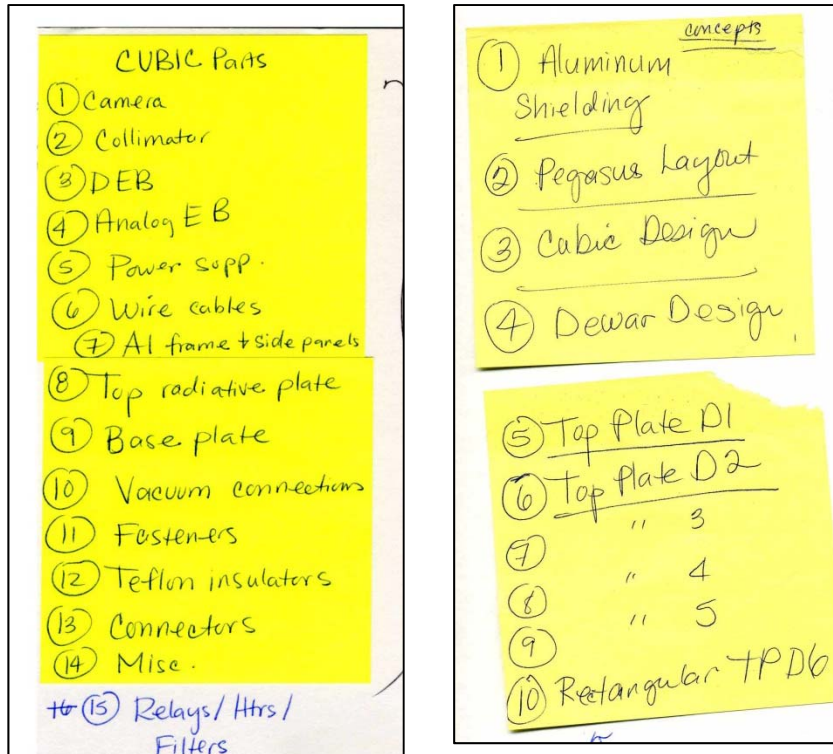 CUBIC Parts
① Camera
② Collimator
③ DEB
④ Analog EB
⑤ Power supp.
⑥ Wire cables
⑦ Al frame + side panels
⑧ Top radiative plate
⑨ Base plate
⑩ Vacuum connections
⑪ Fasteners
⑫ Teflon insulators
⑬ Connectors
⑭ Misc.
⑮ Relays/Htrs/
Filters
concepts
① Aluminum
Shielding
② Pegasus Layout
③ Cubic Design
④ Dewar Design
⑤ Top Plate D1
⑥ Top Plate D2
⑦ " 3
⑧ " 4
⑨ " 5
⑩ Rectangular TP D6